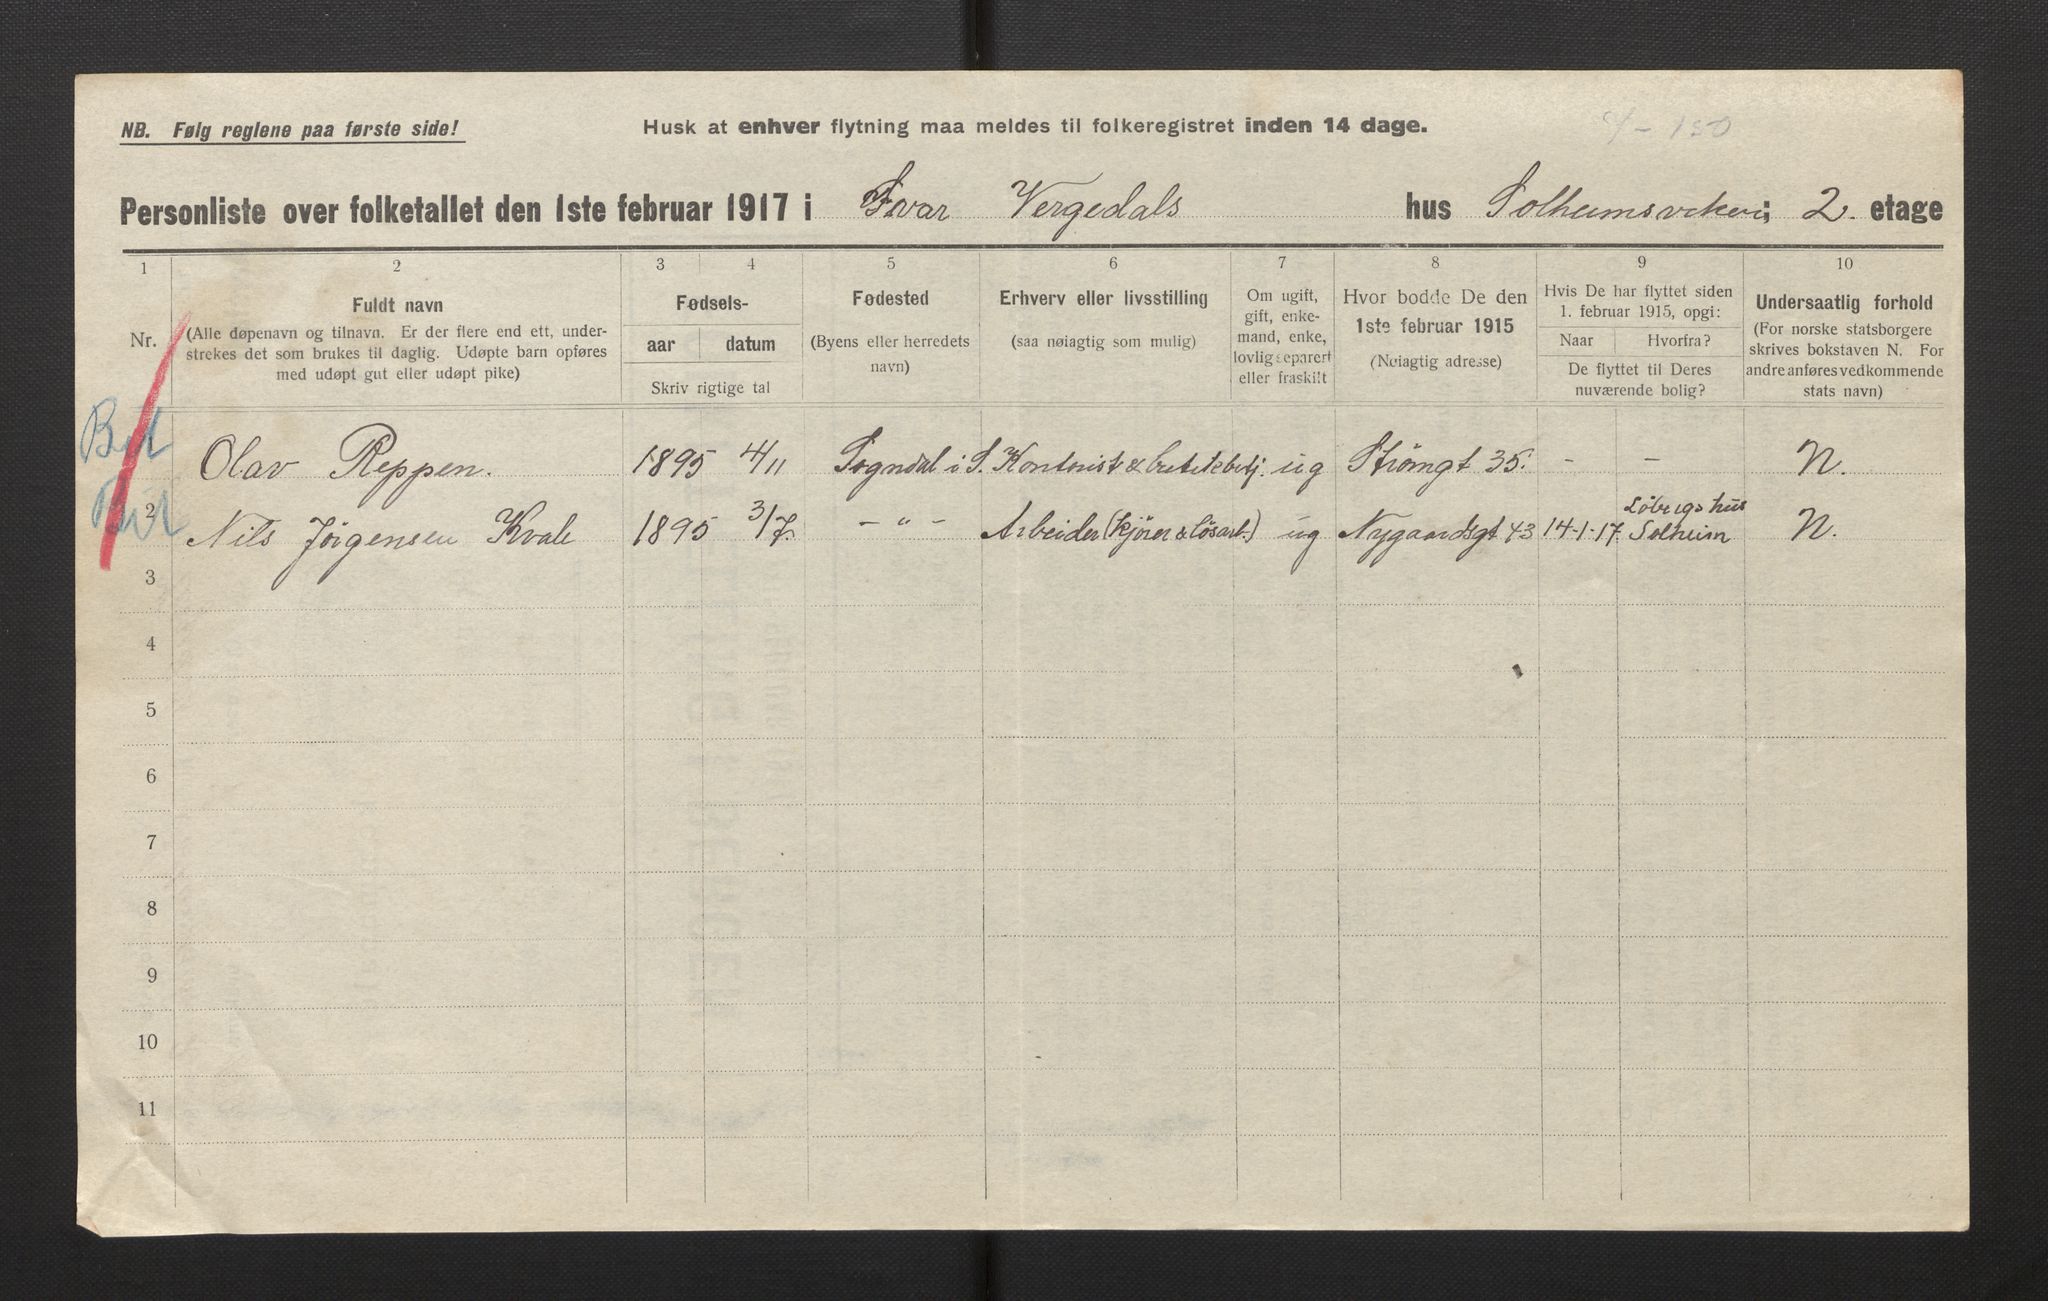 NB. Følg reglene paa første side!
Husk at enhver flytning maa meldes til folkeregistret inden 14 dage.
Personliste over folketallet den 1ste februar 1917 i Ivar Vergedals hus Solheimsviken; 2. etage
1 2 3 4 5 6 7 8 9 10
Nr.
Fuldt navn
(Alle døpenavn og tilnavn. Er der flere end ett, under-
strekes det som brukes til daglig. Udøpte barn opføres
med udøpt gut eller udøpt pike)
Fødsels-
aar datum
Skriv rigtige tal
Fødested
(Byens eller herredets
navn)
Erhverv eller livsstilling
(saa nøiagtig som mulig)
Om ugift,
gift, enke-
mand, enke,
lovlig separert
eller fraskilt
Hvor bodde De den
1ste februar 1915
(Nøiagtig adresse)
Hvis De har flyttet siden
1. februar 1915, opgi:
Naar Hvorfra?
De flyttet til Deres
nuværende bolig?
Undersaatlig forhold
(For norske statsborgere
skrives bokstaven N. For
andre anføres vedkommende
stats navn)
Olav Reppen. 1895 4/11 Sogndal i S. Kontorist & ug Strömgt 35. - - N.
2 Nils Jørgensen Kvale 1895 3/7. - " - Arbeider (kjörer & lösarb.) ug Nygaardsgt 43 14-1-17. Löbergs hus
Solheim N.
3
4
5
6
7
8
9
10
11